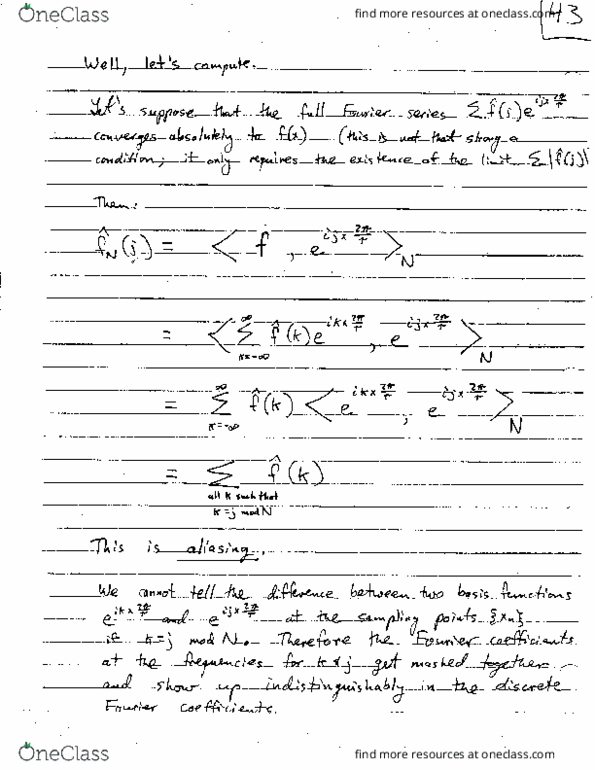 OneClass
find more resources at oneclass.com
43
Well, let's compute.
Let's suppose that the full Fourier series Σ f̂(j)e^{ijx 2π/τ}
converges absolutely to f(x) (this is not that strong a
condition; it only requires the existence of the limit Σ|f̂(j)|
Then:
f̂_N(j) = < f , e^{ijx 2π/τ} >_N
= < Σ_{k=-∞}^{∞} f̂(k)e^{ikx 2π/τ} , e^{ijx 2π/τ} >_N
= Σ_{k=-∞}^{∞} f̂(k) < e^{ikx 2π/τ} , e^{ijx 2π/τ} >_N
= Σ f̂(k)
all k such that
k=j mod N
This is aliasing.
We cannot tell the difference between two basis functions
e^{ikx 2π/τ} and e^{ijx 2π/τ} at the sampling points {x_n}
if k=j mod N. Therefore the Fourier coefficients
at the frequencies for k & j get mashed together
and show up indistinguishably in the discrete
Fourier coefficients.
OneClass
find more resources at oneclass.com